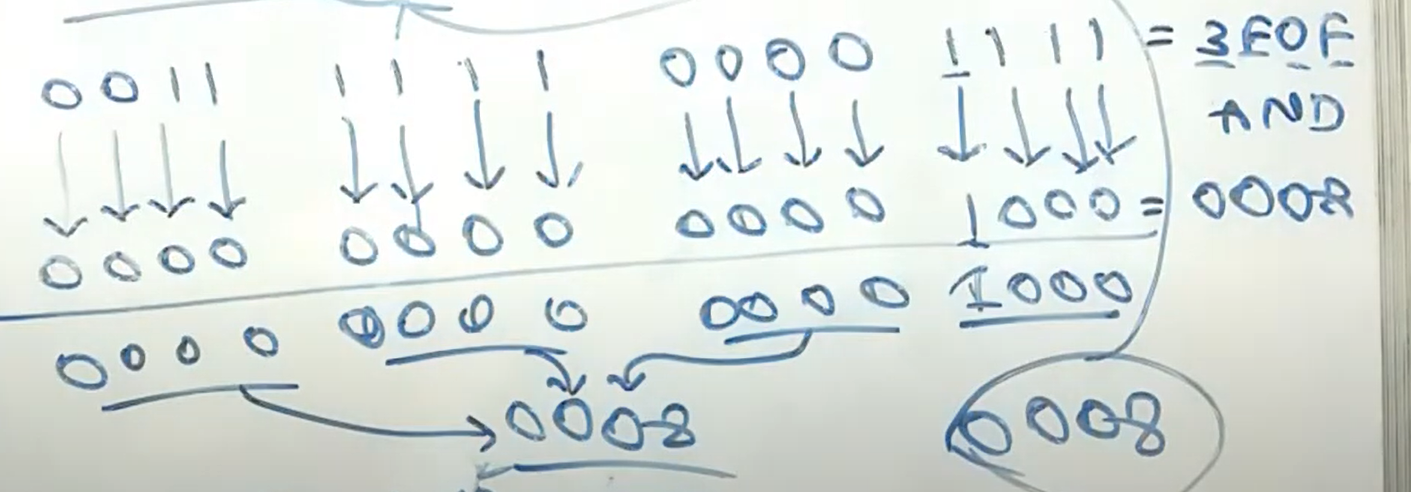 0011 1111 0000 1111 = 3F0F
AND
0000 0000 0000 1000 = 0008
0000 0000 0000 1000
0008 0008